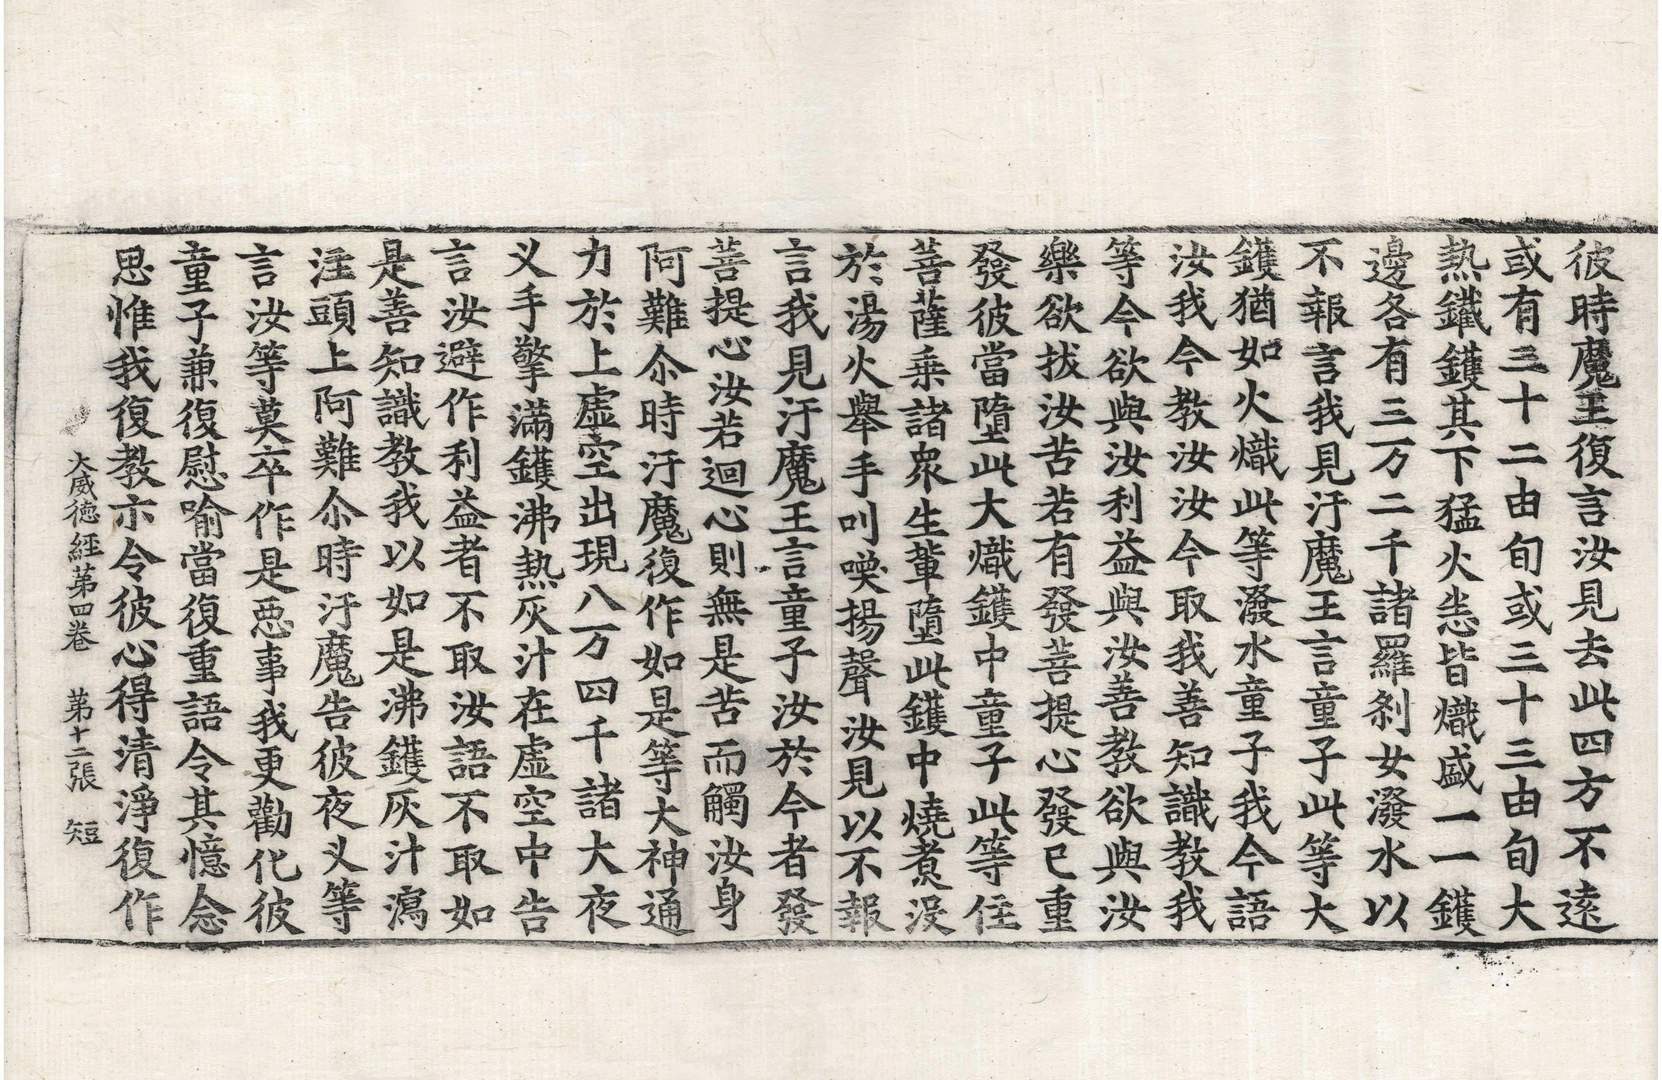 彼時魔王復言汝見去此四方不遠
或有三十二由旬或三十三由旬大
熱鐵鑊其下猛火悉皆熾盛一一鑊
邊各有三万二千諸羅刹女潑水以
不報言我見汙魔王言童子此等大
鑊猶如火熾此等潑水童子我今語
汝我今教汝汝今取我善知識教我
等今欲與汝利益與汝善教欲與汝
樂欲拔汝苦若有發菩提心發已重
發彼當墮此大熾鑊中童子此等住
菩薩乗諸衆生輩墮此鑊中燒煮没
於湯火舉手叫喚揚聲汝見以不報
言我見汙魔王言童子汝於今者發
菩提心汝若迴心則無是苦而觸汝身
阿難尒時汙魔復作如是等大神通
力於上虛空出現八万四千諸大夜
叉手擎滿鑊沸熱灰汁在虛空中告
言汝避作利益者不取汝語不取如
是善知識教我以如是沸鑊灰汁瀉
注頭上阿難尒時汙魔告彼夜叉等
言汝等莫卒作是惡事我更勸化彼
童子兼復慰喻當復重語令其憶念
思惟我復教示令彼心得清淨復作
大威德經第四卷　第十二張　短